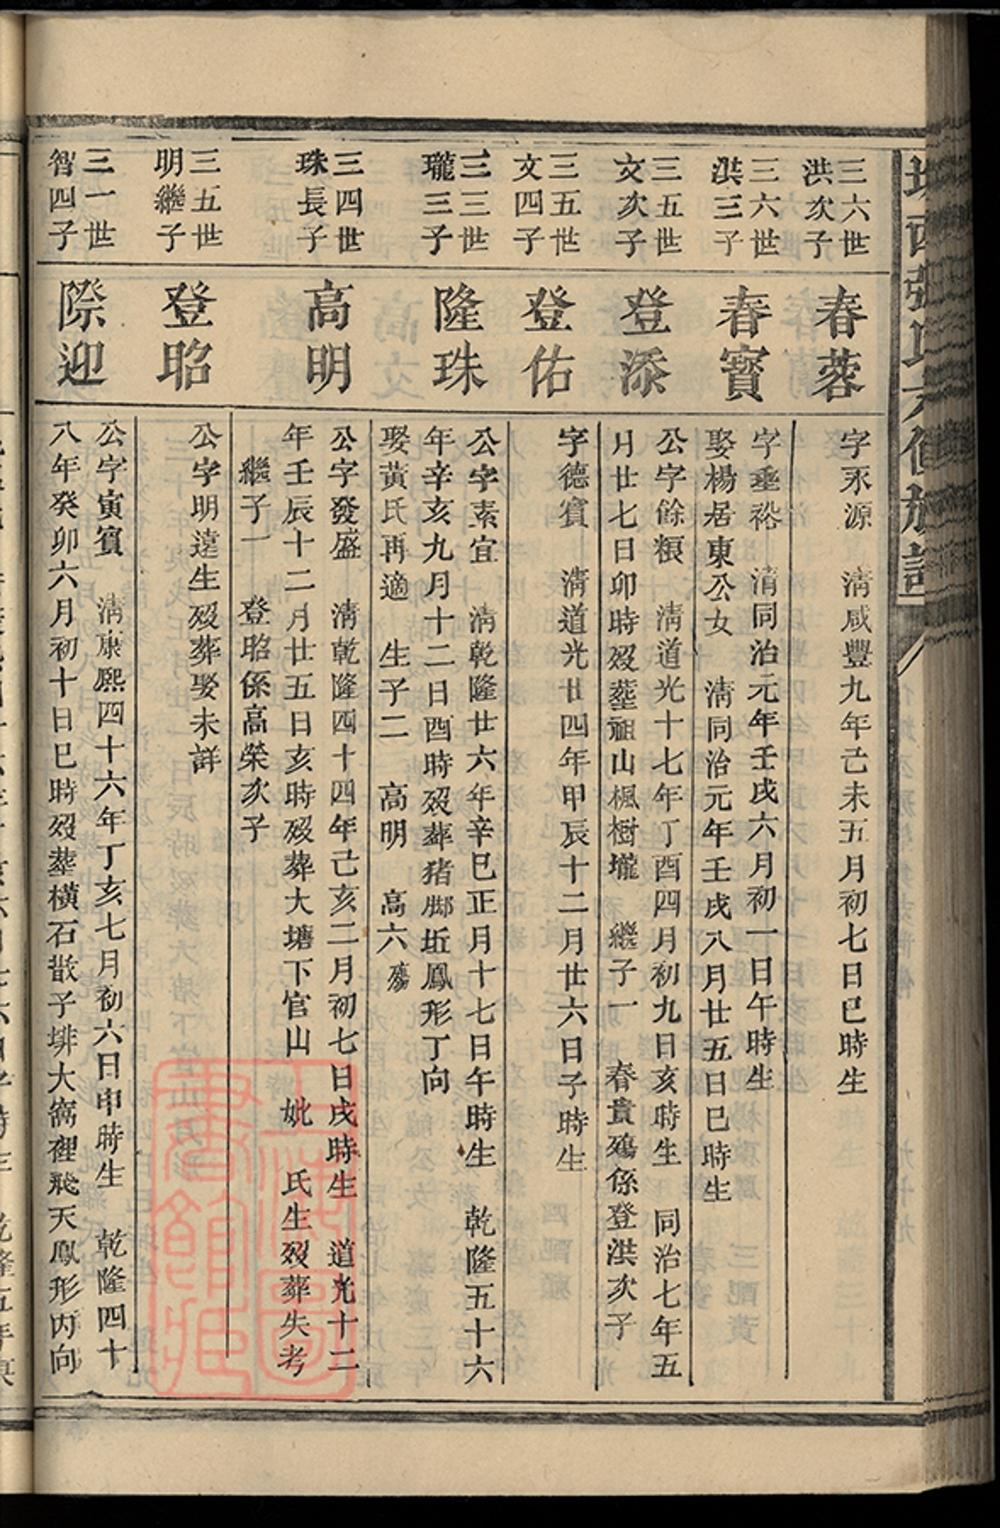 三六世
洪次子
春蓉
字永源　清咸豐九年己未五月初七日巳時生
三六世
洪三子
春寶
字垂裕　清同治元年壬戌六月初一日午時生
娶楊居東公女　清同治元年壬戌八月廿五日巳時生
三五世
文次子
登添
公字餘粮　清道光十七年丁酉四月初九日亥時生　同治七年五
月廿七日卯時歿葬祖山楓樹壠　繼子一　春貴殤係登洪次子
三五世
文四子
登佑
字德賓　清道光廿四年甲辰十二月廿六日子時生
三三世
瓏三子
隆珠
公字素宜　清乾隆廿六年辛巳正月十七日午時生　乾隆五十六
年辛亥九月十二日酉時歿葬猪脚坵鳳形丁向
娶黃氏再適　生子二　高明　高六殤
三四世
珠長子
高明
公字發盛　清乾隆四十四年己亥二月初七日戌時生　道光十二
年壬辰十二月廿五日亥時歿葬大塘下官山　妣　氏生歿葬失考
繼子一　登昭係高榮次子
三五世
明繼子
登昭
公字明遠生歿葬娶未詳
三一世
智四子
際迎
公字寅賓　清康熙四十六年丁亥七月初六日申時生　乾隆四十
八年癸卯六月初十日巳時歿葬橫石散子排大窩裡飛天鳳形丙向
上海圖
書館藏